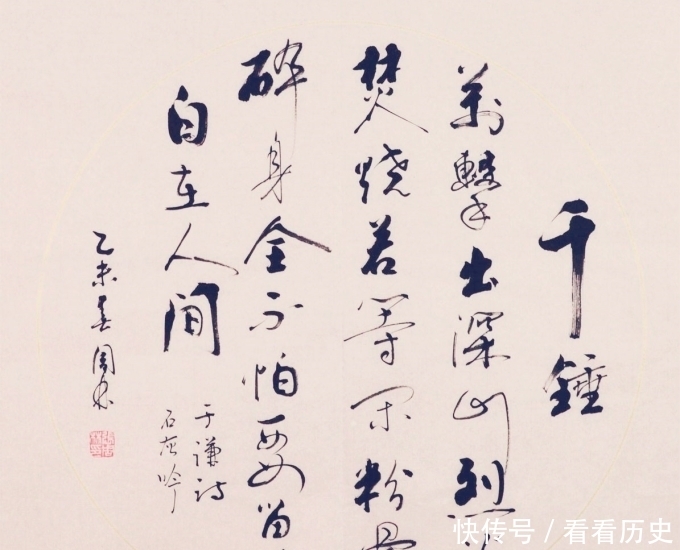 千錘
萬擊出深山列
焚燒若等闲粉骨
碎身全不怕要留
白在人间
于谦诗
石灰吟
乙未春周
快传号 / 看看历史